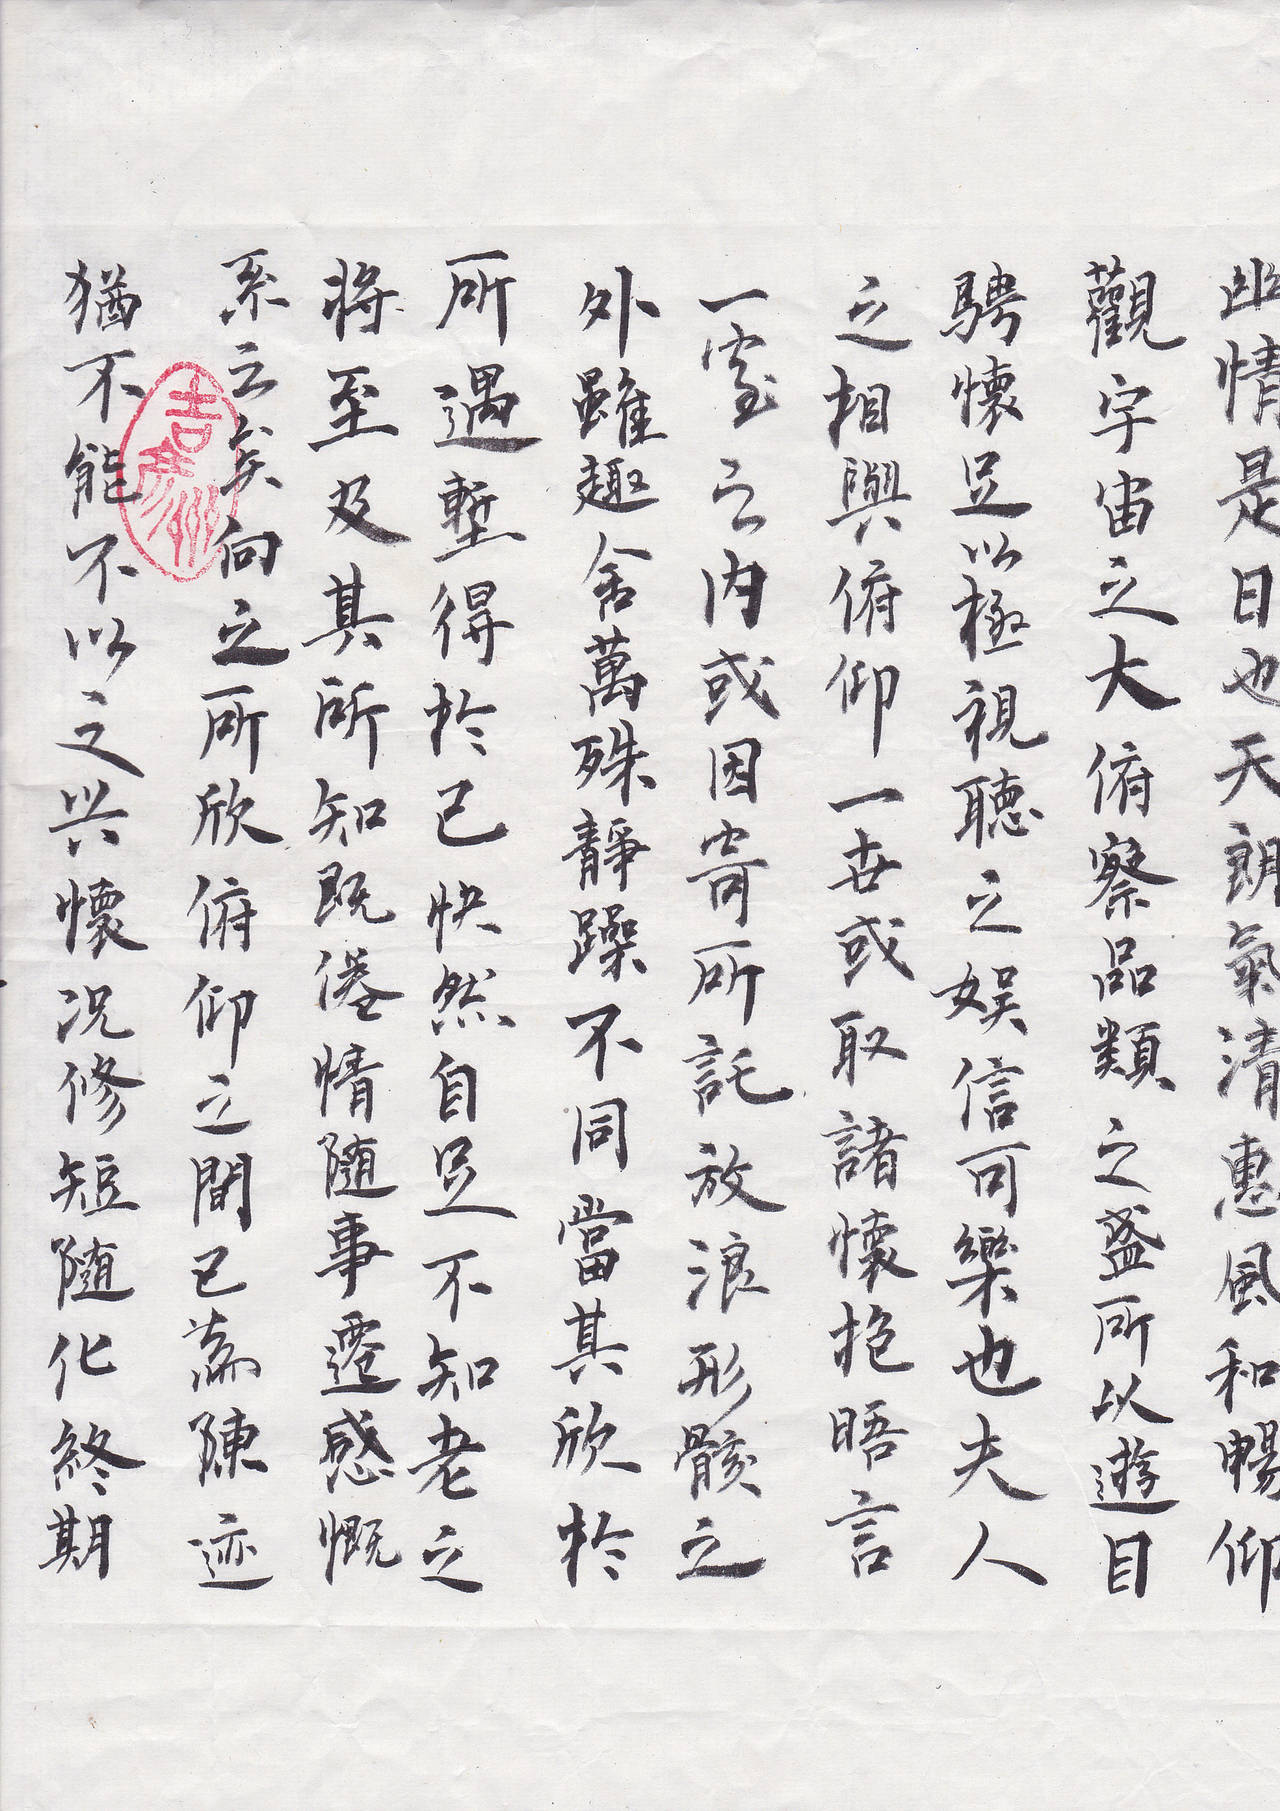 幽情是日也天朗氣清惠風和暢仰
觀宇宙之大俯察品類之盛所以遊目
騁懷足以極視聽之娛信可樂也夫人
之相與俯仰一世或取諸懷抱晤言
一室之內或因寄所託放浪形骸之
外雖趣舍萬殊靜躁不同當其欣於
所遇蹔得於己快然自足不知老之
將至及其所知既倦情隨事遷感慨
系之矣向之所欣俯仰之間已為陳迹
猶不能不以之興懷況修短隨化終期